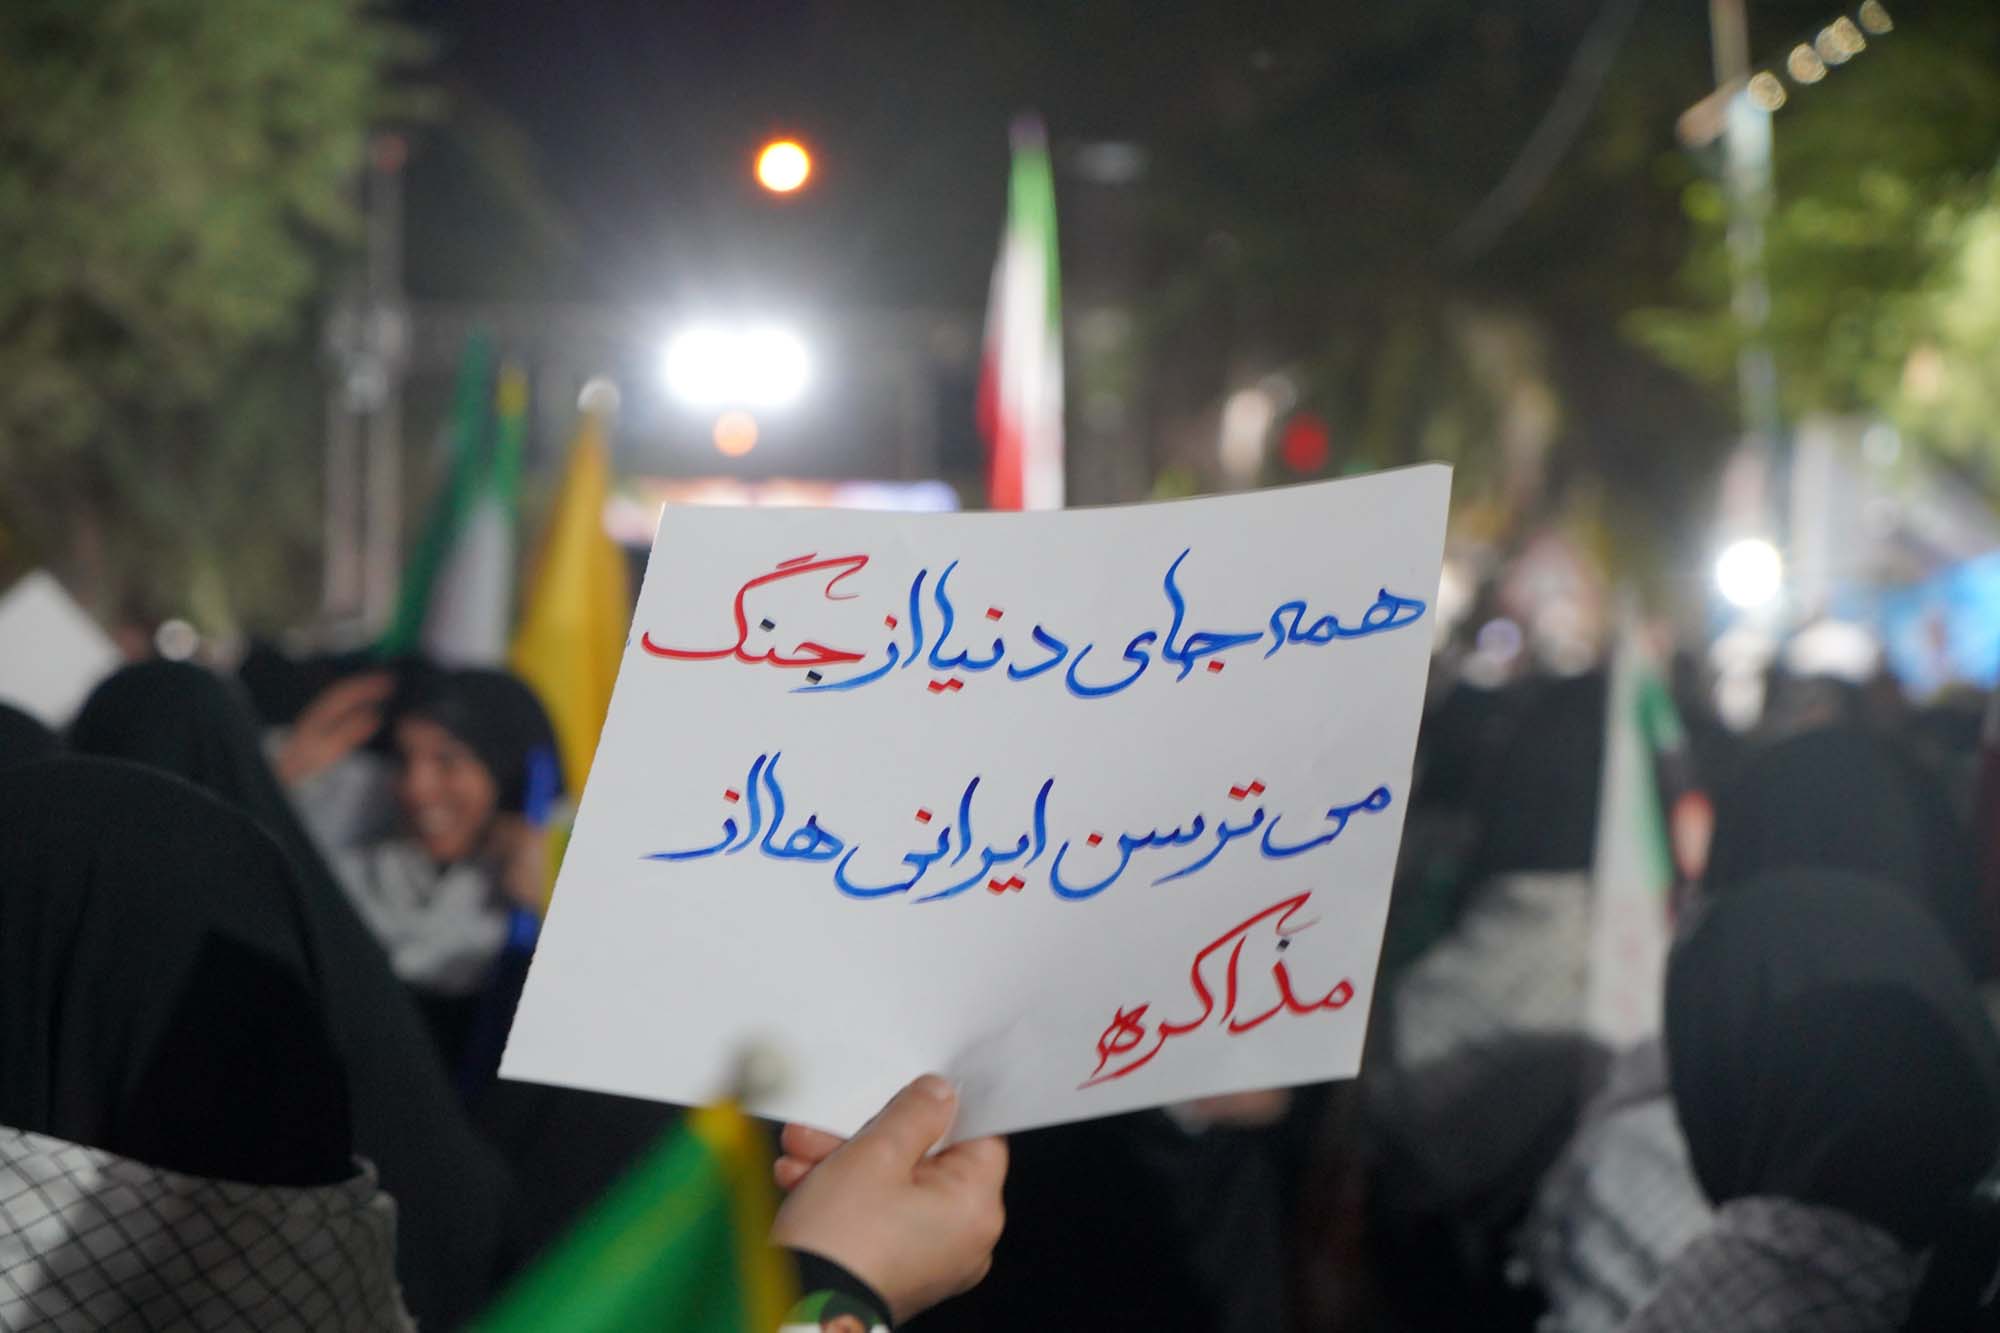 همه جای دنیا از جنگ
می ترسن ایرانی ها از
مذاکره